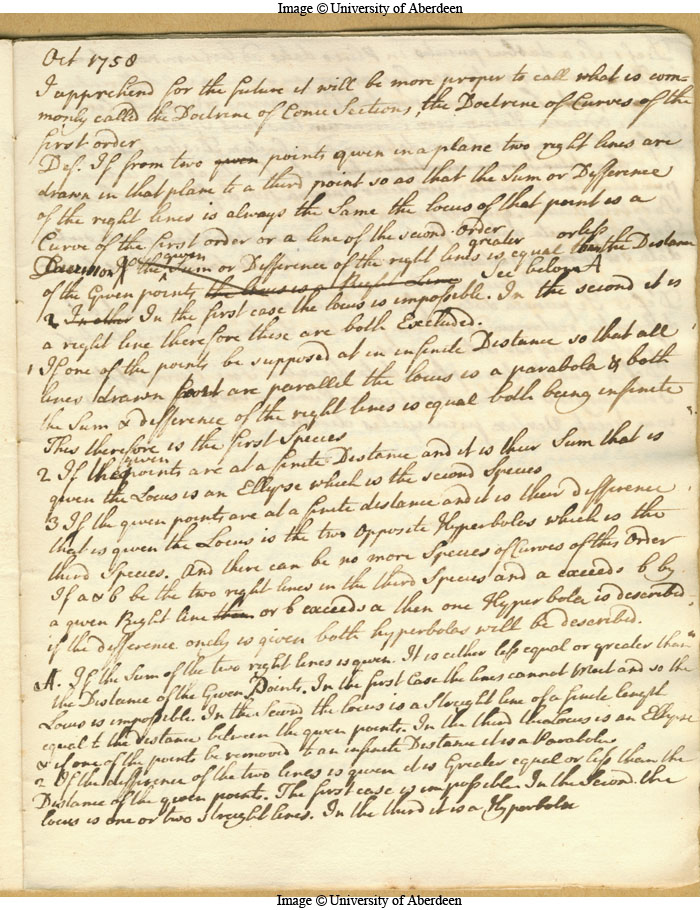 Image © University of Aberdeen
Oct 1758
I apprehend for the future it will be more proper to call what is com=
monly called the Doctrine of Conic Sections, the Doctrine of Curves of the
first order
Def. If from two given points given in a plane two right lines are
drawn in that plane to a third point so as that the Sum or Difference
of the right lines is always the Same the locus of that point is a
Curve of the first order or a line of the second order
given greater or less
If the Sum or Difference of the right lines is equal than the Distance
of the Given points the locus is a Right Line See below A
2 In other In the first case the locus is impossible. In the second it is
a right line therefore these are both Excluded.
1 If one of the points be supposed at an infinite Distance so that all
lines drawn from it are parallel the locus is a parabola & both
the Sum & difference of the right lines is equal both being infinite
This therefore is the first Species
2 If the given points are at a finite Distance and it is their Sum that is
given the Locus is an Ellypse which is the second Species
3 If the given points are at a finite distance and it is their difference
that is given the Locus is the two Opposite Hyperbolas which is the
third Species. And there can be no more Species of Curves of this Order
If a & b be the two right lines in the third Species and a exceeds b by
a given Right line then or b exceeds a then one Hyperbola is described.
if the difference onely is given both hyperbolas will be described.
A. If the Sum of the two right lines is given. It is either less equal or greater than
the Distance of the Given Points. In the first Case the lines cannot Meet and so the
Locus is impossible. In the Second the locus is a Streight line of a finite length
equal to the distance between the given points. In the third the Locus is an Ellypse
& if one of the points be removed to an infinite Distance it is a Parabola
2 If the difference of the two lines is given it is Greater equal or less than the
Distance of the given points. The first case is impossible. In the Second the
locus is one or two streight lines. In the third it is a Hyperbola
Image © University of Aberdeen